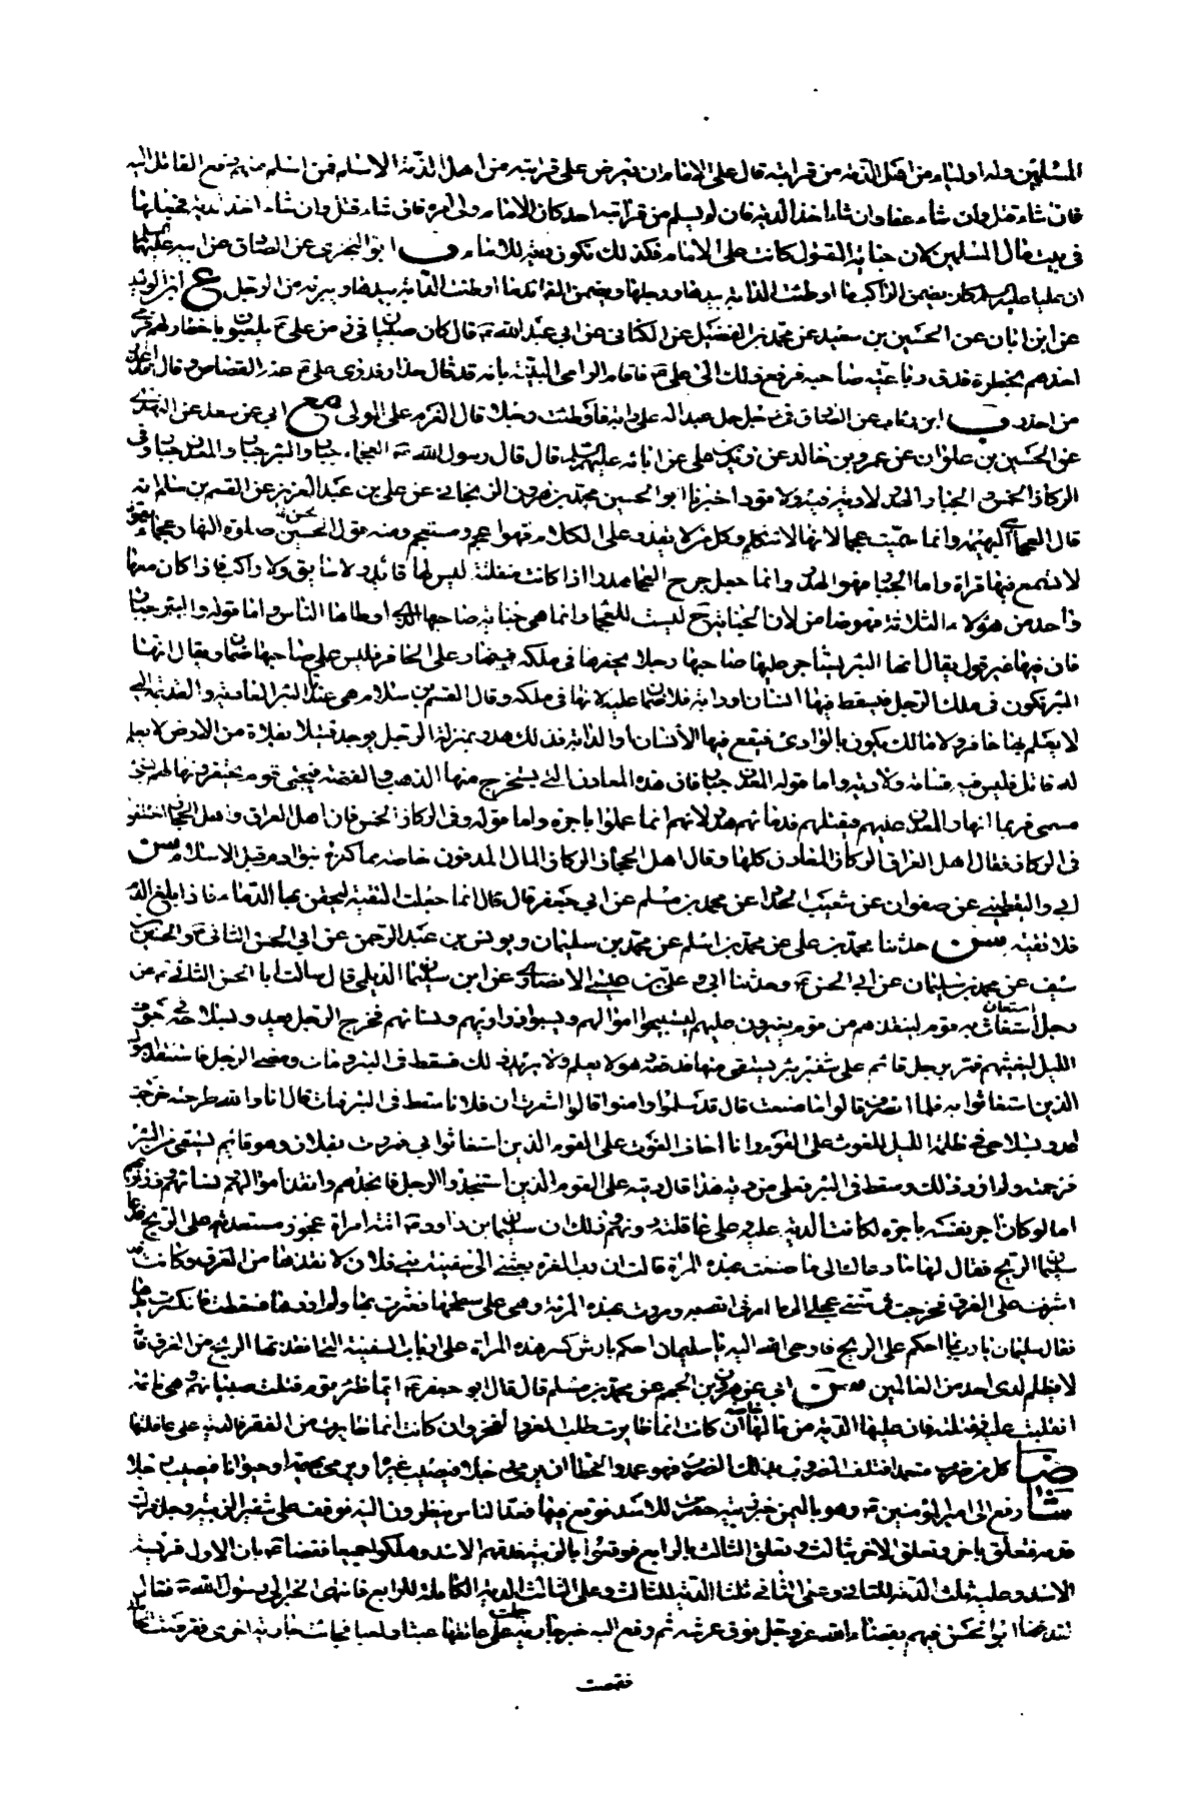 المسلمين وله اولياء من اهل الذمة من قرابته قال على الامام ان يعرض على قرابته من اهل الذمة الاسلام فمن اسلم منهم دفع القاتل اليه
فان شاء قتل وان شاء عفا وان شاء اخذ الدية فان لم يسلم من قرابته احد كان الامام ولى امره فان شاء قتل وان شاء اخذ الدية فجعلها
فى بيت مال المسلمين لان جناية المقتول كانت على الامام فكذلك تكون ديته للامام ب ابو البخترى عن الصادق عن ابيه عليهما السلم
ان عليا عليه السلم كان يضمن الراكب ما اوطئت الدابة بيدها ورجلها ويضمن القائد ما اوطئت الدابة بيدها ويبرئه من الرجل ع ابن الوليد
عن ابن ابان عن الحسين بن سعيد عن محمد بن الفضيل عن الكنانى عن ابى عبد الله ع قال كان صبيان فى زمن على ع يلعبون باخطار لهم فرمى
احدهم بخطره فدق رباعية صاحبه فرفع ذلك الى على ع فاقام الرامى البينة بانه قد قال حذار فدرئ على ع عنه القصاص وقال قد اعذر
من حذر ب ابن رئاب عن الصادق فى رجل حمل عبدا له على دابة فاوطئت رجلا قال الغرم على المولى مع ابى عن سعد عن النهدى
عن الحسين بن علوان عن عمرو بن خالد عن زيد بن على عن ابائه عليهم السلم قال قال رسول الله ص العجماء جبار والبئر جبار والمعدن جبار وفى
الركاز الخمس الجبار الهدر لا دية فيه ولا قود اخبرنا ابو الحسين محمد بن هرون الزنجانى عن على بن عبد العزيز عن القسم بن سلام انه
قال العجماء هى البهيمة وانما سميت عجماء لانها لا تتكلم وكل من لا يقدر على الكلام فهو اعجم ومستعجم ومنه قول الحسن صلوة النهار عجماء يقول
لا تسمع فيها قراءة واما الجبار فهو الهدر وانما جعل جرح العجماء هدرا اذا كانت منفلتة ليس لها قائد ولا سائق ولا راكب فاذا كان معها
واحد من هؤلاء الثلاثة فهو ضامن لان الجناية ح ليست للعجماء وانما هى جناية صاحبها الذى اوطاها الناس واما قوله والبئر جبار
فان فيها غير قول يقال انها البئر يستاجر عليها صاحبها رجلا يحفرها فى ملكه فينهار على الحافر فليس على صاحبها ضمان ويقال انها
البئر تكون فى ملك الرجل فيسقط فيها انسان او دابة فلا ضمان عليه لانها فى ملكه وقال القسم بن سلام هى عندى البئر العادية القديمة التى
لا يعلم لها حافر ولا مالك يكون بالوادى فيقع فيها الانسان او الدابة فذلك هدر بمنزلة الرجل يوجد قتيلا بفلاة من الارض لا يعلم
له قاتل فليس فيه قسامة ولا دية واما قوله المعدن جبار فان هذه المعادن التى يستخرج منها الذهب والفضة فيجئ قوم يحتفرونها لهم بشئ
مسمى فربما انهار المعدن عليهم فيقتلهم فدماؤهم هدر لانهم انما عملوا باجرة واما قوله وفى الركاز الخمس فان اهل العراق واهل الحجاز اختلفوا
فى الركاز فقال اهل العراق الركاز المعادن كلها وقال اهل الحجاز الركاز المال المدفون خاصة مما كنزه بنو ادم قبل الاسلام سن
ابى واليقطينى عن صفوان عن شعيب الحداد عن محمد بن مسلم عن ابى جعفر قال قال انما جعلت التقية ليحقن بها الدماء فاذا بلغ الدم
فلا تقية سن حدثنا محمد بن على عن محمد بن اسلم عن محمد بن سليمان ويونس بن عبد الرحمن عن ابى الحسن الثانى ع والحسين بن
سيف عن محمد بن سليمان عن ابى الحسن ع وحدثنا ابى عن على بن عيسى الانصارى عن ابن سليمان الديلمى قال سالت ابا الحسن الثانى ع عن
رجل استغاث به قوم لينقذهم من قوم يغيرون عليهم ليستبيحوا اموالهم ويسبوا ذراريهم ونساءهم فخرج الرجل يعدو بسلاحه فى جوف
الليل ليغيثهم فمر برجل قائم على شفير بئر يستقى منها فدفعه وهو لا يعلم ولا يريد ذلك فسقط فى البئر ومات ومضى الرجل فاستنقذ اموال
الذين استغاثوا به فلما انصرف قالوا ما صنعت قال قد سلموا وامنوا قالوا اشعرت ان فلانا سقط فى البئر فمات قال انا والله طرحته خرجت
اعدو بسلاحى فى ظلمة الليل للغوث على القوم وانا اخاف الفوت على القوم الذين استغاثوا بى فمررت بفلان وهو قائم يستقى من البئر
فزحمته ولم ارد ذلك وسقط فى البئر فعلى من دية هذا قال ديته على القوم الذين استنجدوا الرجل فانجدهم وانقذ اموالهم ونساءهم وذراريهم
اما لو كان اجر نفسه باجرة لكانت الدية عليه وعلى عاقلته دونهم وذلك ان سليمان بن داود ع اتته امراة عجوز مستعدية على الريح فدعا
سليمان الريح فقال لها ما دعاك الى ما صنعت بهذه المراة قالت ان رب العزة بعثنى الى سفينة بنى فلان لانقذها من الغرق وكانت قد
اشرفت على الغرق فخرجت فى سنتى عجلى الى ما امرنى الله به ومررت بهذه المراة وهى على سطحها فعثرت بها ولم اردها فسقطت فانكسرت يدها
فقال سليمان يا رب بما احكم على الريح فاوحى الله اليه يا سليمان احكم بارش كسر هذه المراة على ارباب السفينة التى انقذتها الريح من الغرق فانه
لا يظلم لدى احد من العالمين سن ابى عن هرون بن الجهم عن محمد بن مسلم قال قال ابو جعفر ع ايما ظئر قوم قتلت صبيا لهم وهى نائمة
انقلبت عليه فقتلته فان عليها الدية من مالها خاصة ان كانت انما ظايرت طلب العز والفخر وان كانت انما ظايرت من الفقر فالدية على عاقلتها
ضا كل من ضرب متعمدا فتلف المضروب بذلك الضرب فهو عمد والخطا ان يرمى رجلا فيصيب غيره او يرمى بهيمة او حيوانا فيصيب رجلا
شا رفع الى امير المؤمنين ع وهو باليمن خبر زبية حفرت للاسد فوقع فيها فغدا الناس ينظرون اليه فوقف على شفير الزبية رجل فزلت
قدمه فتعلق باخر وتعلق الاخر بثالث وتعلق الثالث بالرابع فوقعوا بالزبية فدقهم الاسد وهلكوا جميعا فقضى ع بان الاول فريسة
الاسد وعليه ثلث الدية للثانى وعلى الثانى ثلثا الدية للثالث وعلى الثالث الدية الكاملة للرابع فانتهى الخبر الى رسول الله ص فقال
لقد قضى ابو الحسن فيهم بقضاء الله عز وجل فوق عرشه ثم رفع اليه خبر جارية حملت جارية على عاتقها عبثا ولعبا فجاءت جارية اخرى فقرصت الحاملة
فقمصت